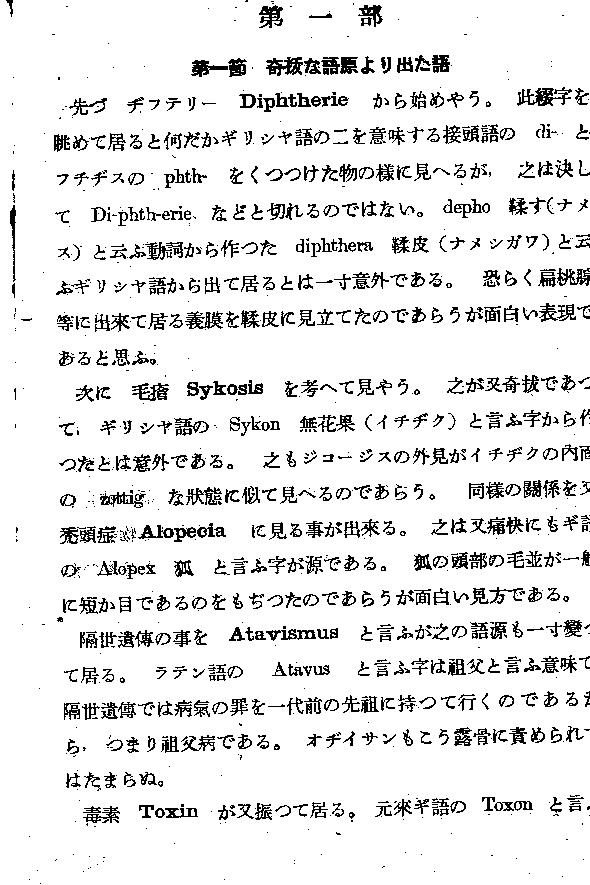 第一部
第一節 奇抜な語原より出た語
先づ ヂフテリー Diphtherie から始めやう。 此綴字を
眺めて居ると何だかギリシヤ語の二を意味する接頭語の di- と
フチヂスの phth- をくつつけた物の様に見へるが、 之は決し
て Di-phth-erie などと切れるのではない。 depho 鞣す(ナメ
ス)と云ふ動詞から作つた diphthera 鞣皮(ナメシガワ)と云
ふギリシヤ語から出て居るとは一寸意外である。 恐らく扁桃腺
等に出來て居る義膜を鞣皮に見立てたのであらうが面白い表現で
あると思ふ。
次に 毛瘡 Sykosis を考へて見やう。 之が又奇抜であつ
て、 ギリシヤ語の Sykon 無花果(イチヂク)と言ふ字から作
つたとは意外である。 之もジコージスの外見がイチヂクの内面
の zottig な狀態に似て見へるのであらう。 同樣の關係を又
禿頭症 Alopecia に見る事が出來る。 之は又痛快にもギ語
の Alopex 狐 と言ふ字が源である。 狐の頭部の毛並が一般
に短か目であるのをもぢつたのであらうが面白い見方である。
隔世遺傳の事を Atavismus と言ふが之の語源も一寸變つ
て居る。 ラテン語の Atavus と言ふ字は祖父と言ふ意味で
隔世遺傳では病氣の罪を一代前の先祖に持つて行くのであるか
ら、 つまり祖父病である。 オヂイサンもこう露骨に責められて
はたまらぬ。
毒素 Toxin が又振つて居る。 元來ギ語の Toxon と言